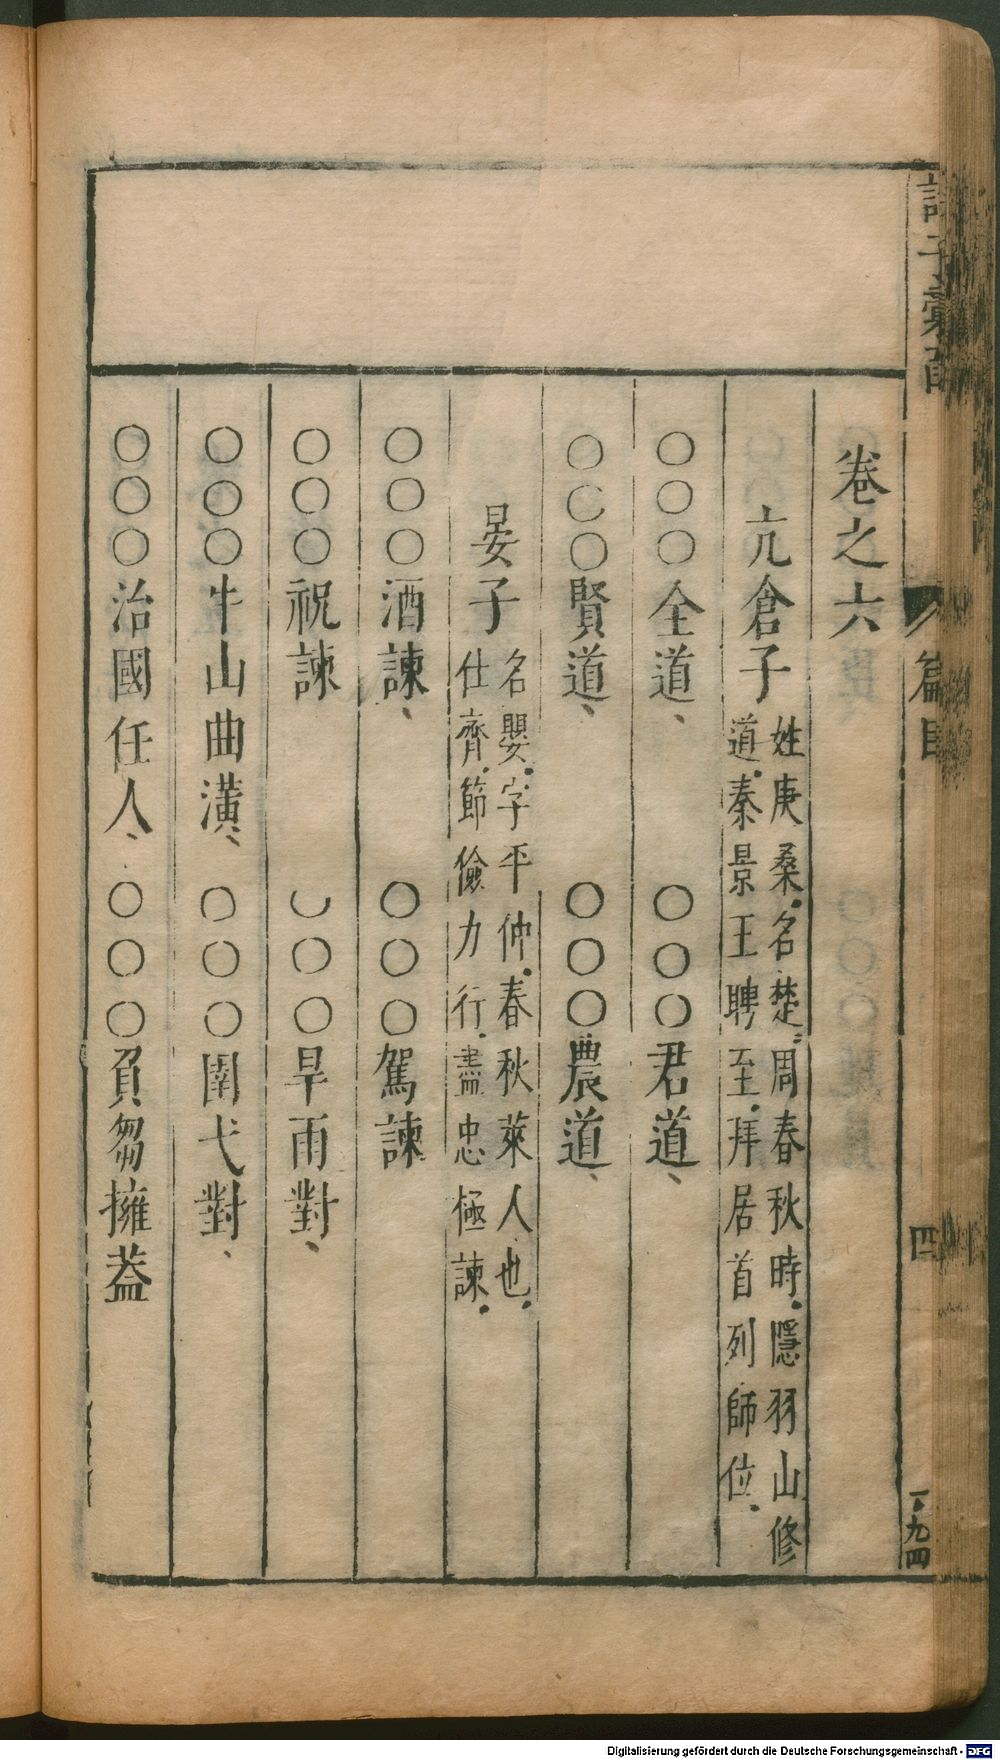 卷之六
亢倉子 姓庚桑名楚周春秋時隱羽山修
道秦景王聘至拜居首列師位
○○○全道 ○○○君道
○○○賢道 ○○○農道
晏子 名嬰字平仲春秋萊人也
仕齊節儉力行盡忠極諫
○○○酒諫 ○○○駕諫
○○○祝諫 ○○○旱雨對
○○○牛山曲潢 ○○○圉弋對
○○○治國任人 ○○○負芻擁蓋
子彙
篇目
四
一九四
Digitalisierung gefördert durch die Deutsche Forschungsgemeinschaft - DFG